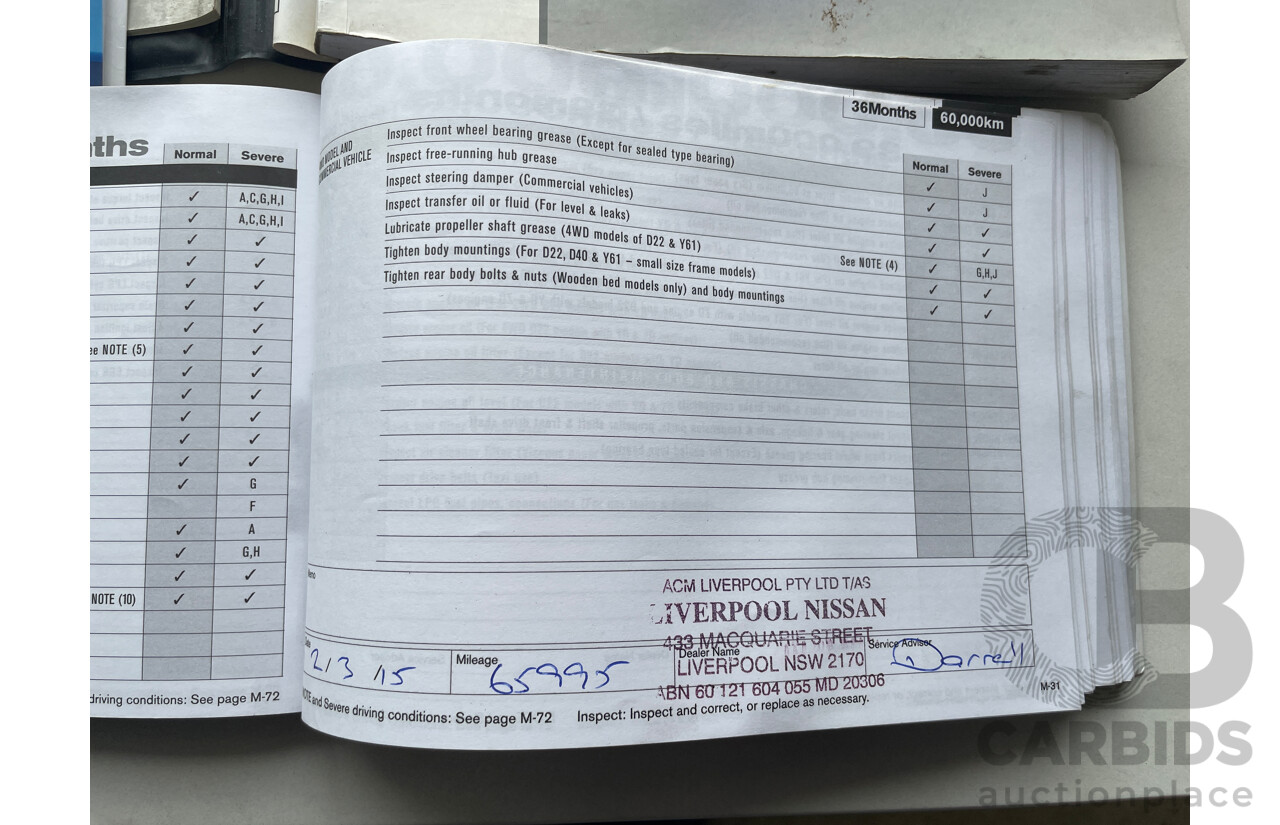 ths
Normal Severe
✓ A,C,G,H,I
✓ A,C,G,H,I
✓ ✓
✓ ✓
✓ ✓
✓ ✓
✓ ✓
ee NOTE (5) ✓ ✓
✓ ✓
✓ ✓
✓ ✓
✓ ✓
✓ ✓
✓ G
F
✓ A
✓ G,H
✓ ✓
NOTE (10) ✓ ✓
driving conditions: See page M-72
36Months 60,000km
MODEL AND
COMMERCIAL VEHICLE
Normal Severe
Inspect front wheel bearing grease (Except for sealed type bearing) ✓ J
Inspect free-running hub grease ✓ J
Inspect steering damper (Commercial vehicles) ✓ ✓
Inspect transfer oil or fluid (For level & leaks) ✓ ✓
Lubricate propeller shaft grease (4WD models of D22 & Y61) See NOTE (4) ✓ G,H,J
Tighten body mountings (For D22, D40 & Y61 – small size frame models) ✓ ✓
Tighten rear body bolts & nuts (Wooden bed models only) and body mountings ✓ ✓
Memo
ACM LIVERPOOL PTY LTD T/AS
LIVERPOOL NISSAN
433 MACQUARIE STREET
LIVERPOOL NSW 2170
ABN 60 121 604 055 MD 20306
2/3/15
Mileage 65995
Dealer Name
Service Advisor Darrell
NOTE and Severe driving conditions: See page M-72 Inspect: Inspect and correct, or replace as necessary.
M-31
CB
CARBIDS
auctionplace